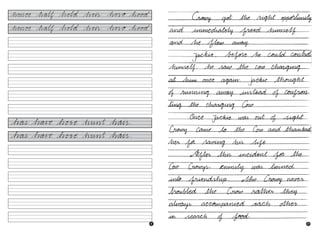 hence half held hers here heed
hence half held hers here heed
has have here hunt hair
has have here hunt hair
Crowy got the right opportunity
and immediately freed himself
and he flew away.
Jackie, before he could control
himself, he saw the cow charging
at him once again. Jackie thought
of running away instead of confron
ting the charging Cow.
Once Jackie was out of sight,
Crowy came to the Cow and thanked
her for saving his life.
After this incident for the
Cow Crowy's enmity was turned
into friendship. The Crowy never
troubled the Cow rather they
always accompanied each other
in search of food.